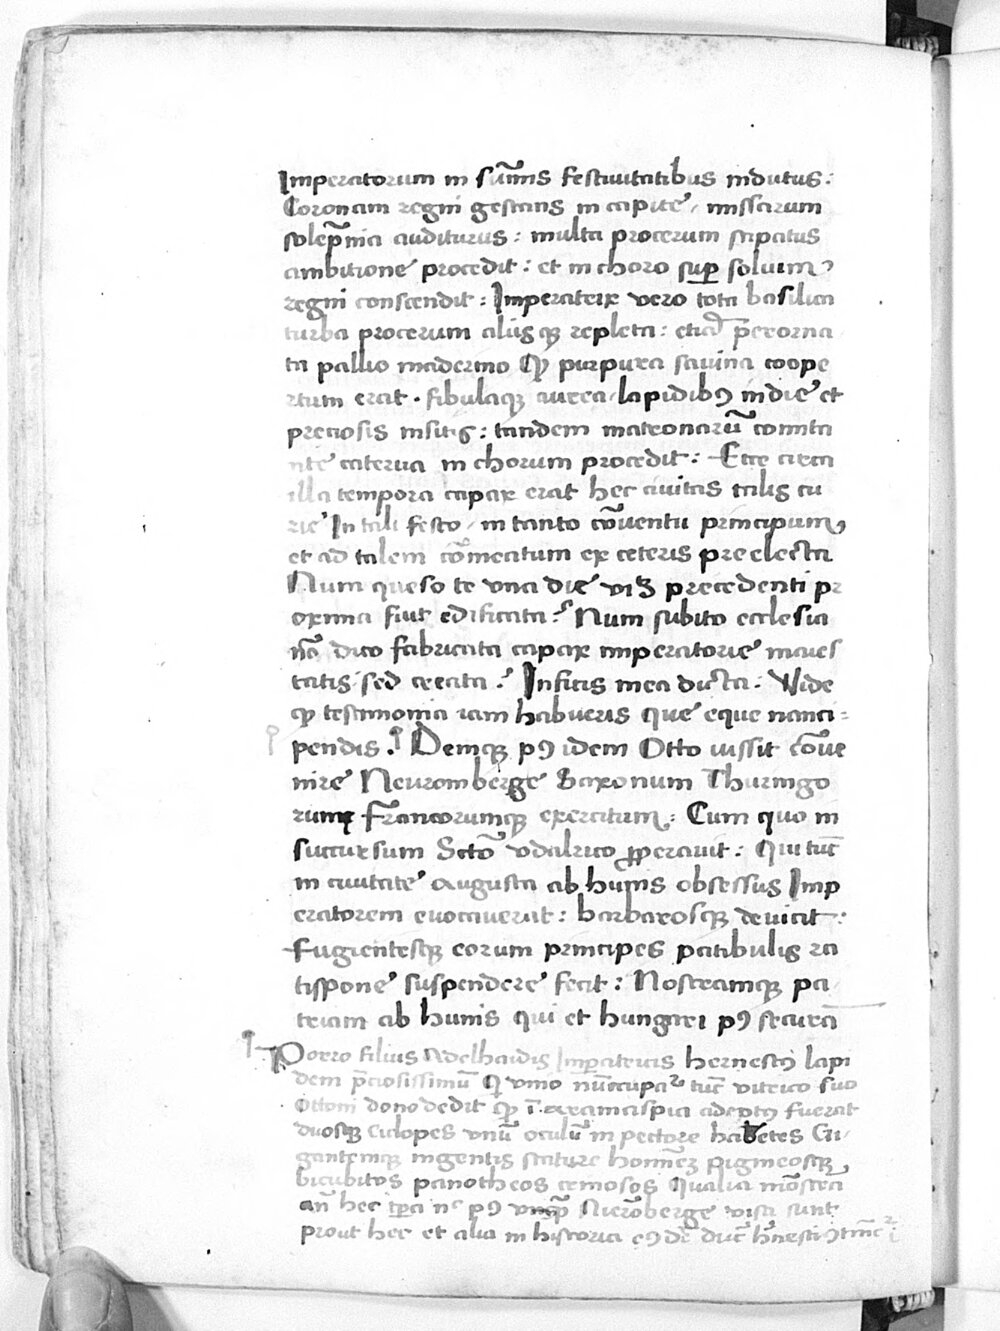 Imperatorum in sūmis festiuitatibus indutus:
Coronam regni gestans in capite, missarum
solēpnia auditurus: multa procerum stipatus
ambitione procedit: et in choro sup solium
regni conscendit: Imperatrix vero tota basilica
turba procerum aliisqꝫ repleta: etiā perorna
ta pallio maderino qꝫ purpura sauina coope
rtum erat. fibulaqꝫ aurea, lapidibꝰ indie et
preciosis insitis: tandem matronarū comita
nte caterua in chorum procedit: Ecce circa
illa tempora capax erat hec ciuitas talis cu
rie In tali festo, in tanto cōuentu principum,
et ad talem cōmeatum ex ceteris preelecta
Num queso te vna die viꝫ precedenti pr
oxima fiut edificata? Num subito ecclesia
nō dico fabricata capax imperatorie maies
tatis sed creata? Insitis mea dicta: Vide
qꝫ testimonia iam habueris que eque nanci=
pendis. Demqꝫ pꝰ idem Otto iussit cōue
nire Neuromberge Saxonum Thuringo
rumqꝫ Francorumqꝫ exercitum: Cum quo in
succursum Sctō vdalrico ꝓperauit: Qui tūc
in ciuitate Augusta ab hunis obsessus Imp
eratorem euocauerat: barbarosqꝫ deuicit:
Fugientesqꝫ eorum principes patibulis ra
tispone suspendere fecit: Nostramqꝫ pa
triam ab hunis qui et hungari pꝰ securā
Porro filius Adelhaidis Imperatricis hernestꝰ lapi
dem p̄ciosissimū qꝫ vnio nūcupatʳ tūc vitrico suo
Ottoni dono dedit qꝫ ī aramaspia adeptꝰ fuerat
duosqꝫ Ciclopes vnū oculū in pectore habētes Gi
gantemqꝫ ingentis stature hominēꝫ pigmeosqꝫ
bicubitos panotheos cemosos Qualia mōstra
an̄ hec tpra nᶜ pꝰ vnqꝫ Nierōberge visa sunt
prout hec et alia in historia